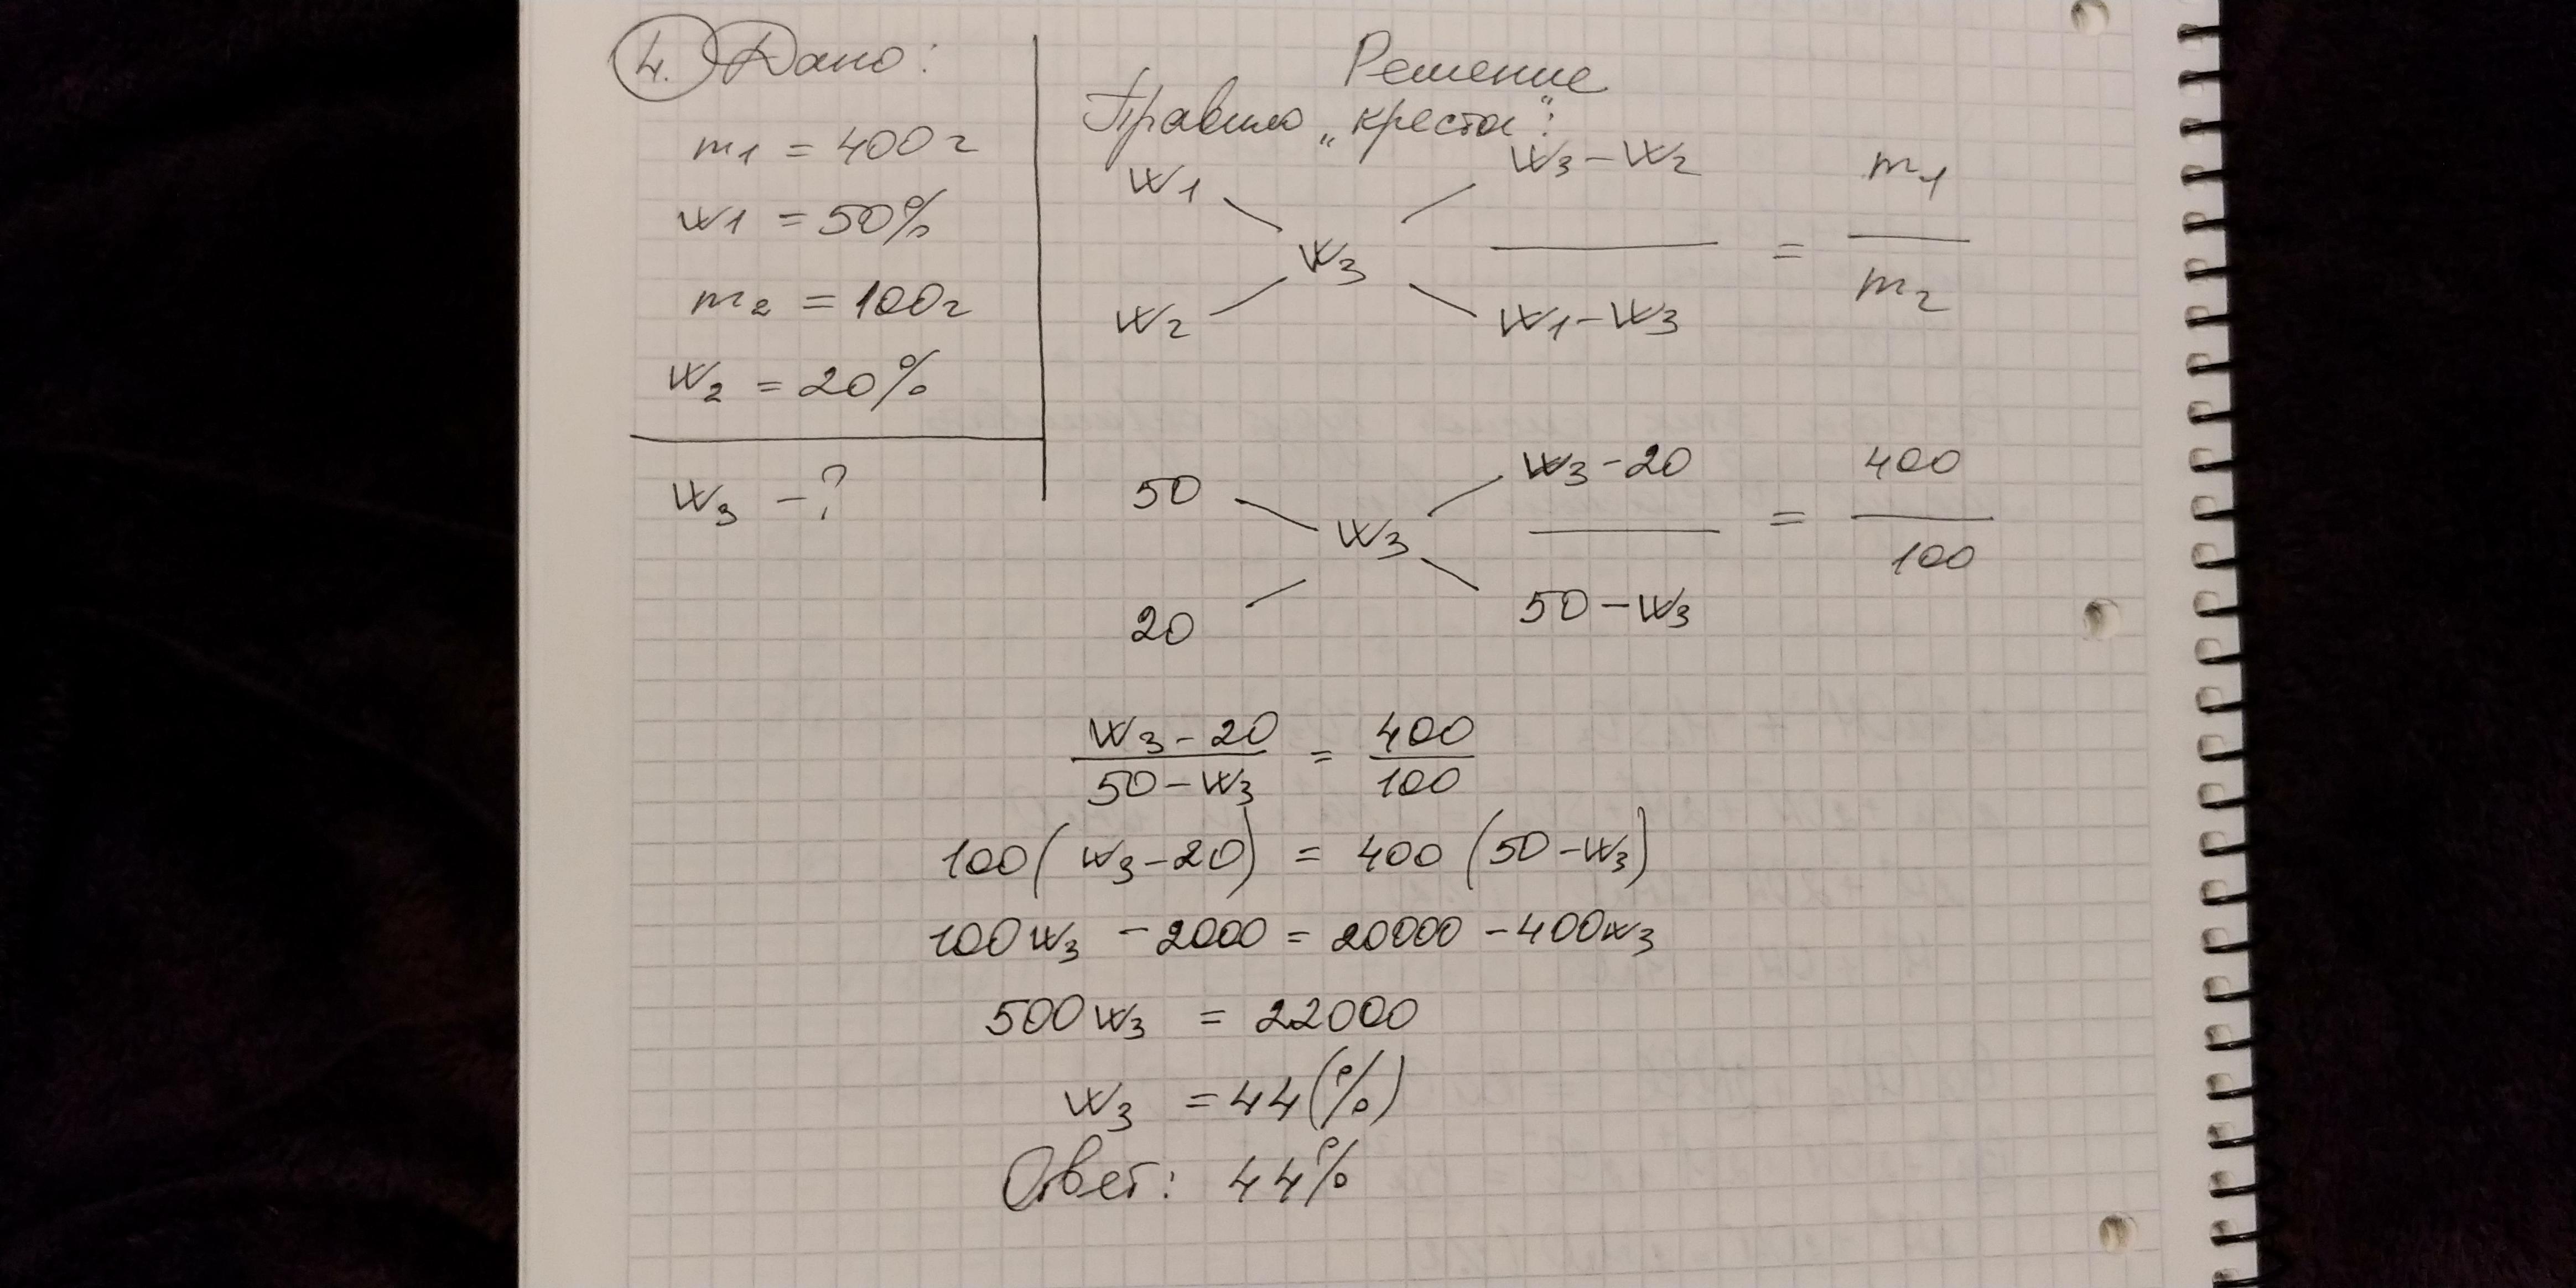 4. Дано:
m1 = 400г
w1 = 50%
m2 = 100г
w2 = 20%
w3 - ?
Решение
Правило „креста":
w1 w3-w2 m1
w3 =
w2 w1-w3 m2
50 w3-20 400
w3 =
20 50-w3 100
w3-20 = 400
50-w3 100
100(w3-20) = 400(50-w3)
100w3 - 2000 = 20000 - 400w3
500w3 = 22000
w3 = 44(%)
Ответ: 44%